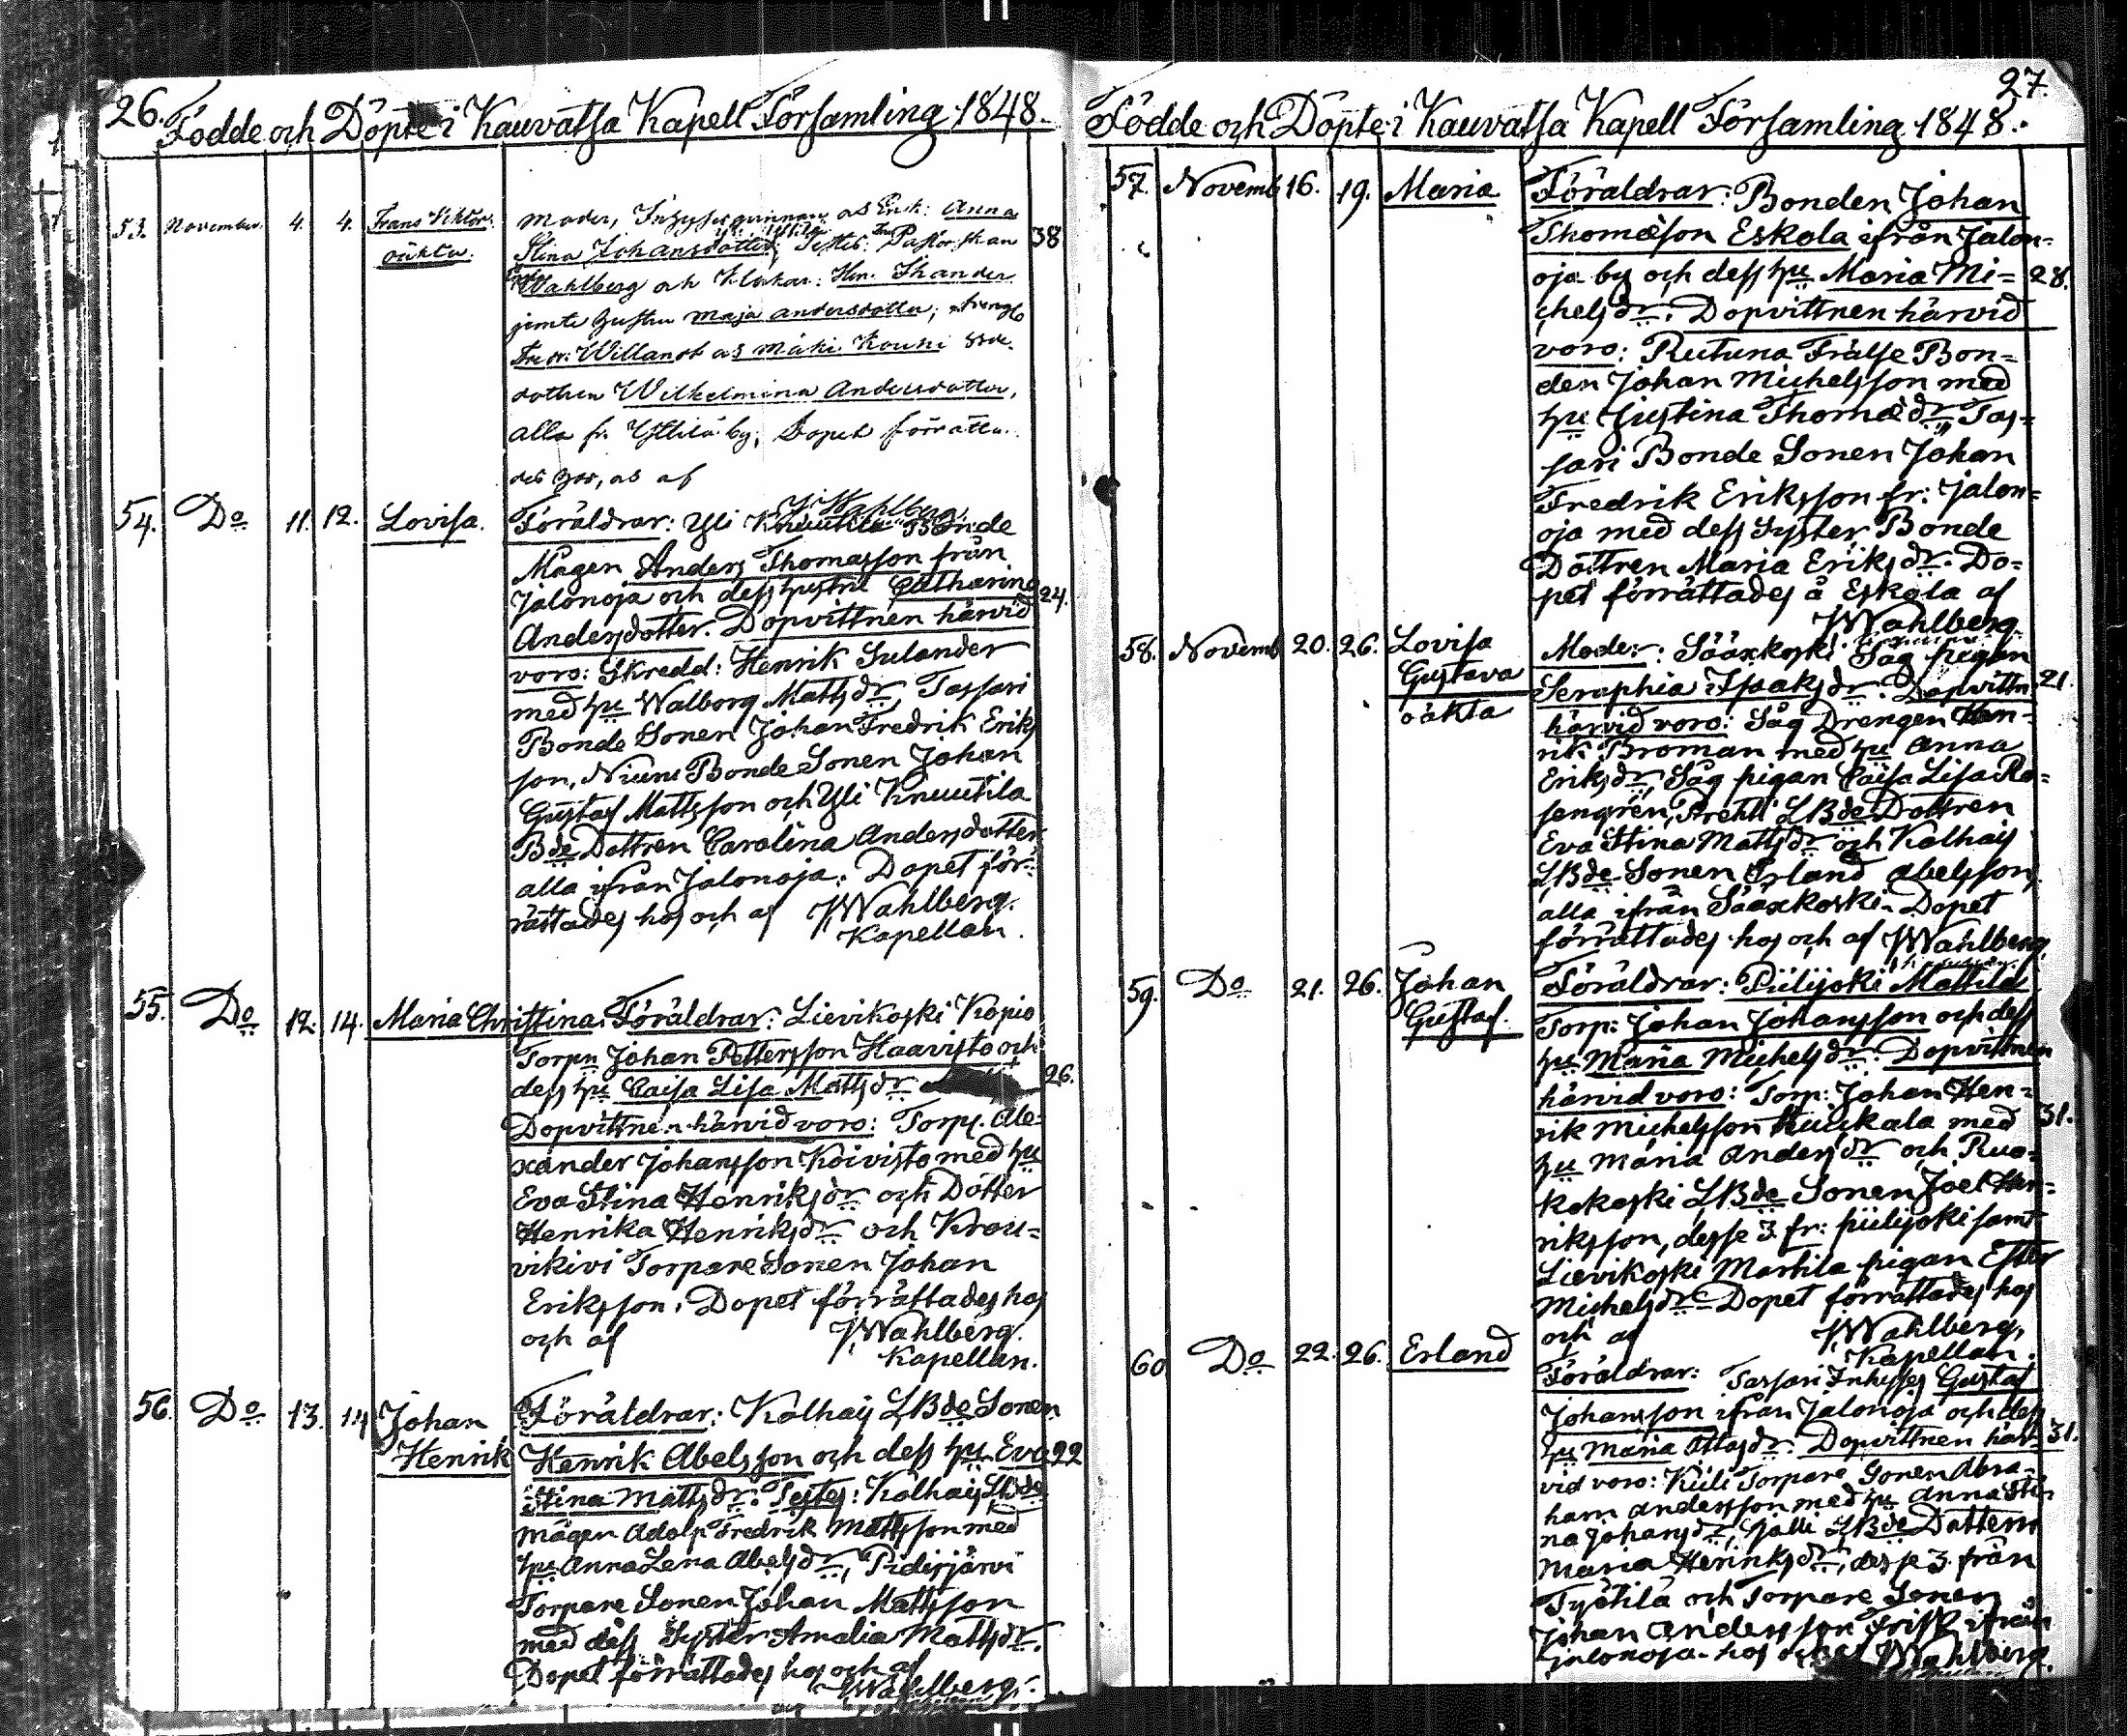 26. Födde och Döpte i Kauvatsa Kapell Församling 1848.
53. November. 4. 4. Frans Viktor
oäkta.
Moder, Anna
Stina Johansdotter; Testes: Pastor
Wahlberg och Klockar: Hen:
jemte hustru Maja Andersdotter,
Fredr: Willanot
dottren Wilhelmina Andersdotter,
alla fr. Yttilä by; Dopet förrätta-
des hos, as af
J: Wahlberg.
54. Do 11. 12. Lovisa.
Föräldrar: Yli Knuutila Bonde
Mågen Anders Thomasson från
Jalonoja och dess hustru Catharina 24.
Andersdotter. Dopvittnen härvid
voro: Skredd: Henrik Sulander
med hu Walborg Mattsdr, Tassari
Bonde Sonen Johan Fredrik Eriks
son, Niuni Bonde Sonen Johan
Gustaf Mattsson och Yli Knuutila
Bde Dottren Carolina Andersdotter
alla ifrån Jalonoja. Dopet för-
rättades hos och af JWahlberg.
Kapellan.
55. Do 12. 14. Maria Christina.
Föräldrar: Lievikoski Kopio
Torpn Johan Pettersson Haavisto och
dess hu Caisa Lisa Mattsdr 26.
Dopvittnen härvid voro: Torp. Ale-
xander Johansson Koivisto med hu
Eva Stina Henriksdr och Dotter
Henrika Henriksdr och Krou-
vikivi Torpare Sonen Johan
Eriksson. Dopet förrättades hos
och af JWahlberg.
Kapellan.
56. Do 13. 14 Johan
Henrik
Föräldrar: Kolhais LBde Sonen
Henrik Abelsson och dess hu Eva 22
Stina Mattsdr. Testes: Kolhais LBde
mågen Adolf Fredrik Mattsson med
hu Anna Lena Abelsdr, Pidisjärvi
Torpare Sonen Johan Mattsson
med dess Syster Amalia Mattsdr.
Dopet förrättades hos och af
JWahlberg.
27.
Födde och Döpte i Kauvatsa Kapell Församling 1848.
57. Novemb 16. 19. Maria
Föräldrar: Bonden Johan
Thomasson Eskola ifrån Jalon-
oja by och dess hu Maria Mi- 28.
chelsdr. Dopvittnen härvid
voro: Rutuna Frälse Bon-
den Johan Michelsson med
hu Justina Thomædr, Tas-
sari Bonde Sonen Johan
Fredrik Eriksson fr: Jalon-
oja med dess Syster Bonde
Dottren Maria Eriksdr. Do-
pet förrättades å Eskola af
JWahlberg
58. Novemb 20. 26. Lovisa
Gustava
oäkta
Moder: Sääxkoski Såg pigan
Seraphia Isaksdr. Dopvittn. 21.
härvid voro: Såg Drengen Hen-
rik Broman med hu Anna
Eriksdr, Såg pigan Caisa Lisa Ro-
sengrén, Prehti LBde Dottren
Eva Stina Mattsdr och Kolhais
LBde Sonen Erland Abelsson,
alla ifrån Sääxkoski. Dopet
förrättades hos och af JWahlberg
59. Do 21. 26. Johan
Gustaf.
Föräldrar: Piilijoki Mattila
Torp: Johan Johansson och dess
hu Maria Michelsdr. Dopvittnen
härvid voro: Torp: Johan Hen- 31.
rik Michelsson Kuukala med
hu Maria Andersdr och Ruo-
kokoski LBde Sonen Joel Hen-
riksson, desse 3. fr: piilijoki samt
Lievikoski Martila pigan Ester
Michelsdr. Dopet förrättades hos
och af JWahlberg,
Kapellan.
60 Do 22. 26. Erland
Föräldrar: Tassari Inhyses Gustaf
Johansson ifrån Jalonoja och dess
hu Maria Ottosdr. Dopvittnen här- 31.
vid voro: Kiili Torpare Sonen Abra-
ham Andersson med hu Anna Sti-
na Johansdr, Sjalli LBde Dottern
Maria Henriksdr, desse 3. från
Työtilä och Torpare Sonen
Johan Andersson Frisk ifrån
Jalonoja. hos och af JWahlberg.